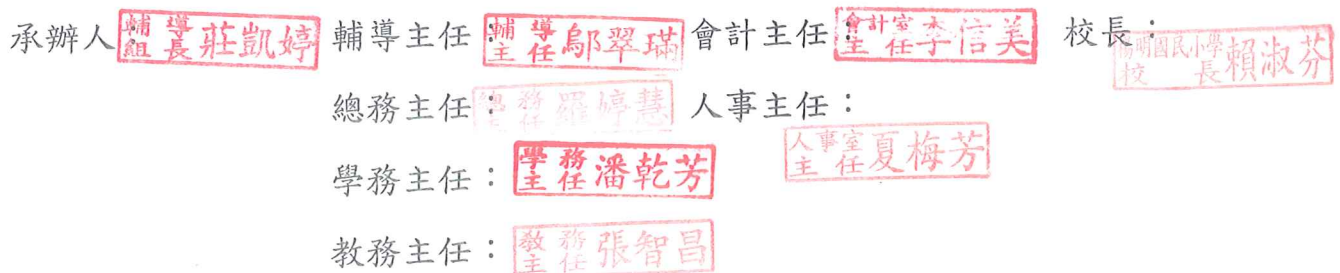 承辦人：輔導組長莊凱婷 輔導主任：輔導主任鄔翠瑀 會計主任：會計室主任李信美 校長：陽明國民小學校長賴淑芬
總務主任：總務主任羅婷慧 人事主任：人事室主任夏梅芳
學務主任：學務主任潘乾芳
教務主任：教務主任張智昌